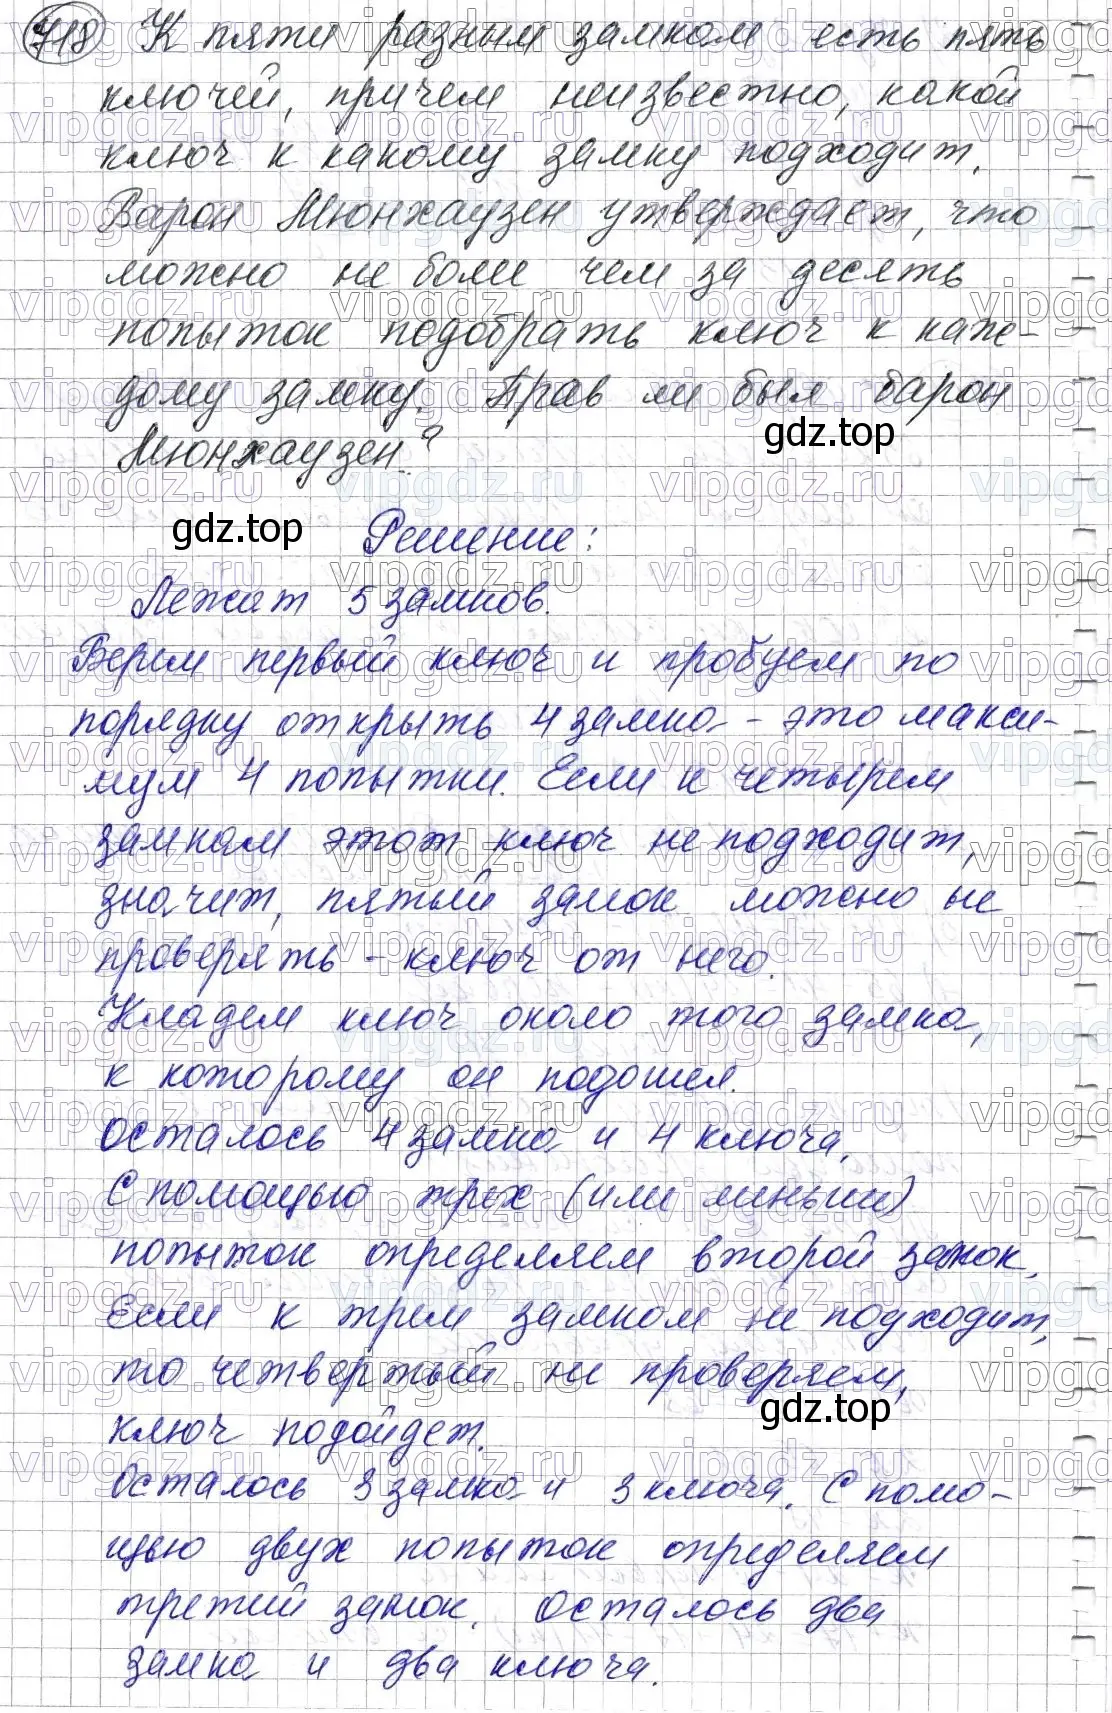 718 К пяти разным замкам есть пять
ключей, причем неизвестно, какой
ключ к какому замку подходит.
Барон Мюнхаузен утверждает, что
можно не боле чем за десять
попыток подобрать ключ к каж-
дому замку. Прав ли был барон
Мюнхаузен?
gdz.top
gdz.top
Решение:
Лежат 5 замков.
Берем первый ключ и пробуем по
порядку открыть 4 замка - это макси-
мум 4 попытки. Если к четырем
замкам этот ключ не подходит,
значит, пятый замок можно не
проверять - ключ от него.
Кладем ключ около того замка,
к которому он подошел.
Осталось 4 замка и 4 ключа.
С помощью трех (или меньше)
попыток определяем второй замок.
Если к трем замкам не подходит,
то четвертый не проверяем,
gdz.top
ключ подойдет.
Осталось 3 замка и 3 ключа. С помо-
щью двух попыток определяем
третий замок. Осталось два
замка и два ключа.
vipgdz.ru